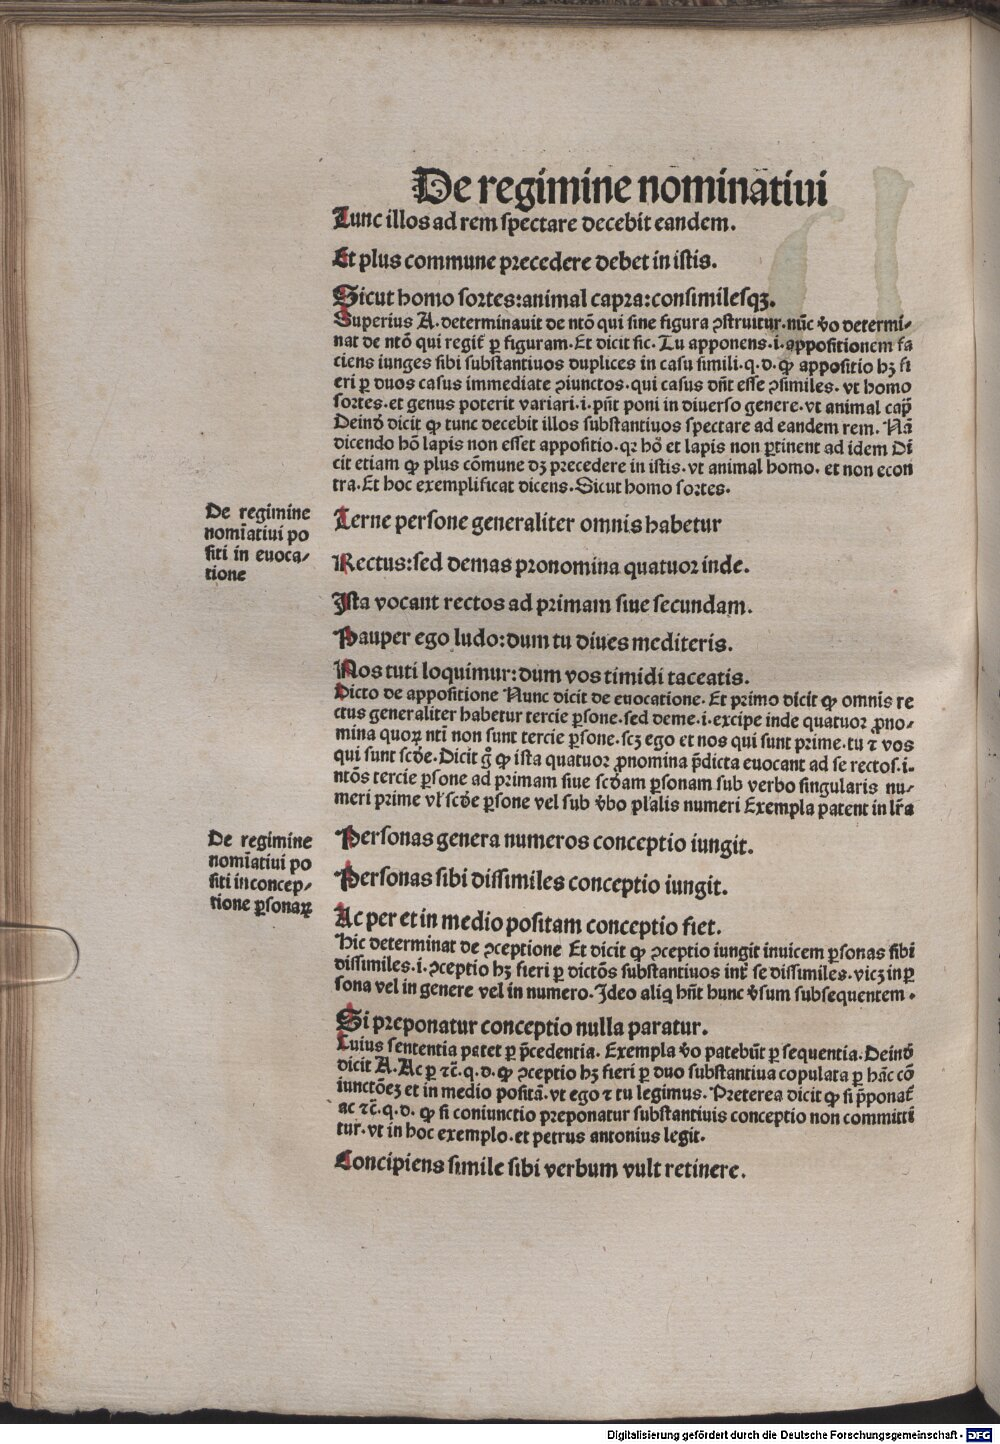 De regimine nominatiui
Tunc illos ad rem spectare decebit eandem.
Et plus commune precedere debet in istis.
Sicut homo sortes:animal capra:consimilesqꝫ.
Superius A.determinauit de ntō qui sine figura ꝯstruitur.nūc v̓o determi⸗
nat de ntō qui regit᷑ ꝑ figuram.Et dicit sic.Tu apponens.i.appositionem fa
ciens iunges sibi substantiuos duplices in casu simili.q.d.ꝙ appositio hꝫ fi
eri ꝑ duos casus immediate ꝯiunctos.qui casus dn̄t esse ꝯsimiles.vt homo
sortes.et genus poterit variari.i.pn̄t poni in diuerso genere.vt animal cap̄
Deinď dicit ꝙ tunc decebit illos substantiuos spectare ad eandem rem.Nā
dicendo hō lapis non esset appositio.qꝛ hō et lapis non ꝑtinent ad idem Di
cit etiam ꝙ plus cōmune dꝫ precedere in istis.vt animal homo.et non econ
tra.Et hoc exemplificat dicens.Sicut homo sortes.
De regimine
nomīatiui po
siti in euoca⸗
tione
Terne persone generaliter omnis habetur
Rectus:sed demas pronomina quatuor inde.
Ista vocant rectos ad primam siue secundam.
Pauper ego ludo:dum tu diues mediteris.
Nos tuti loquimur:dum vos timidi taceatis.
Dicto de appositione Nunc dicit de euocatione.Et primo dicit ꝙ omnis re
ctus generaliter habetur tercie ꝑsone.sed deme.i.excipe inde quatuor ꝓno⸗
mina quoꝝ nti non sunt tercie ꝑsone.scꝫ ego et nos qui sunt prime.tu ⁊ vos
qui sunt scďe.Dicit g̃ ꝙ ista quatuor ꝓnomina p̄dicta euocant ad se rectos.i.
ntōs tercie ꝑsone ad primam siue scďam ꝑsonam sub verbo singularis nu⸗
meri prime vl̓ scďe ꝑsone vel sub v̓bo pl̓alis numeri Exempla patent in lr̄a
De regimine
nomīatiui po
siti in concep⸗
tione ꝑsonaꝝ
Personas genera numeros conceptio iungit.
Personas sibi dissimiles conceptio iungit.
Ac per et in medio positam conceptio fiet.
Hic determinat de ꝯceptione Et dicit ꝙ ꝯceptio iungit inuicem ꝑsonas sibi
dissimiles.i.ꝯceptio hꝫ fieri ꝑ dictōs substantiuos int᷑ se dissimiles.vicꝫ in ꝑ
sona vel in genere vel in numero.Ideo aliq̄ hn̄t hunc v̓sum subsequentem.
Si preponatur conceptio nulla paratur.
Cuius sententia patet ꝑ p̄cedentia. Exempla v̓o patebūt ꝑ sequentia.Deinď
dicit A.Ac ꝑ ⁊c̄.q.d.ꝙ ꝯceptio hꝫ fieri ꝑ duo substantiua copulata ꝑ hāc cō
iunctōeꝫ et in medio positā.vt ego ⁊ tu legimus.Preterea dicit ꝙ si p̄ponat᷑
ac ⁊c̄.q.d. ꝙ si coniunctio preponatur substantiuis conceptio non committi
tur.vt in hoc exemplo.et petrus antonius legit.
Concipiens simile sibi verbum vult retinere.
Digitalisierung gefördert durch die Deutsche Forschungsgemeinschaft - DFG